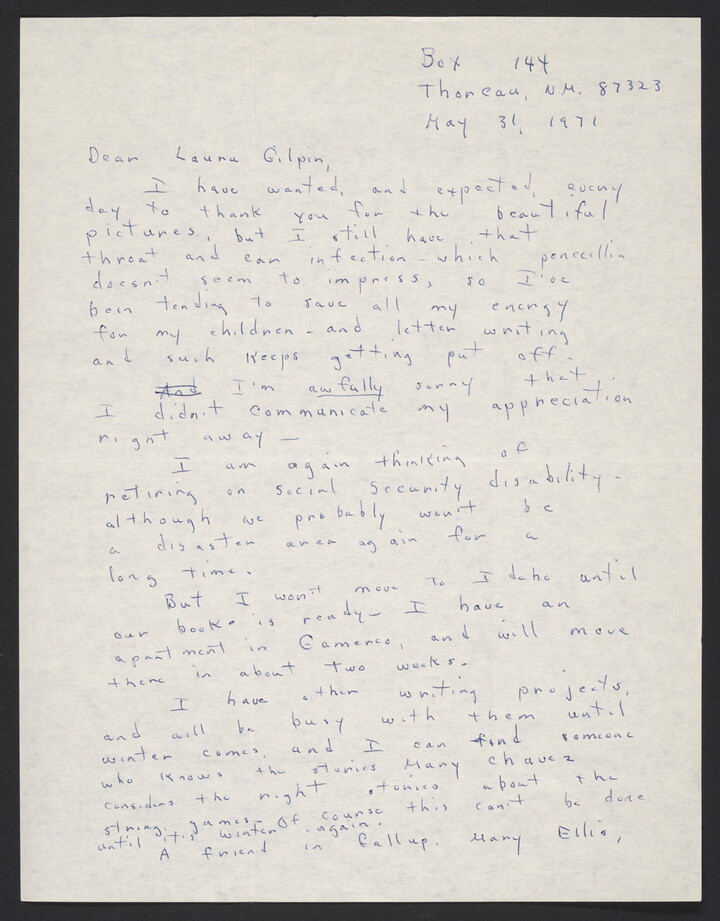 Box 144
Thoreau, N.M. 87323
May 31, 1971
Dear Laura Gilpin,
I have wanted, and expected, every
day to thank you for the beautiful
pictures, but I still have that
throat and ear infection - which penecillin
doesn't seem to impress, so I've
been tending to save all my energy
for my children - and letter writing
and such keeps getting put off.
And I'm awfully sorry that
I didn't communicate my appreciation
right away —
I am again thinking of
retiring on Social Security disability -
although we probably won't be
a disaster area again for a
long time.
But I won't move to Idaho until
our book is ready - I have an
apartment in Gamerco, and will move
there in about two weeks.
I have other writing projects,
and will be busy with them until
winter comes, and I can find someone
who knows the stories Mary Chavez
considers the right stories about the
string games - Of course this can't be done
until it's winter again.
A friend in Gallup, Mary Ellis,